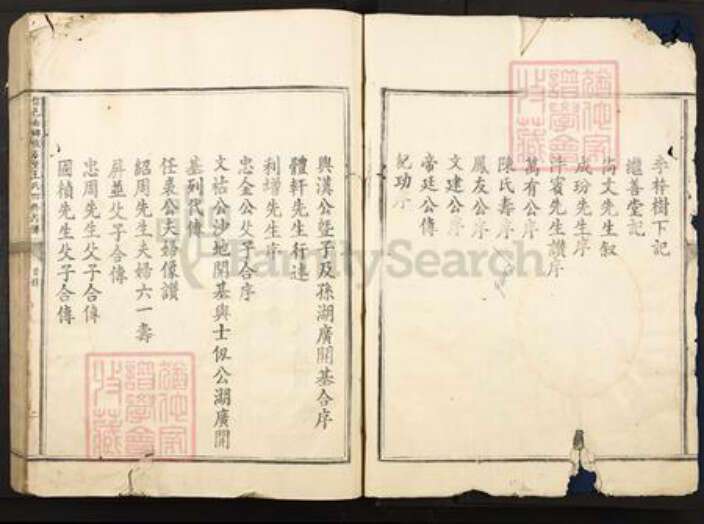 李梓樹下記
繼善堂記
尚文先生叙
成玢先生序
沛賓先生讚序
萬有公序
陳氏壽序
鳳友公序
文建公序
帝廷公傳
紀功序
與漢公暨子及孫湖廣開基合序
體軒先生行述
利增先生序
忠金公父子合序
文祜公沙地開基與士俱公湖廣開
基列代傳
任袠公夫婦像讚
紹周先生夫婦六一壽
屏並父子合傳
忠周先生父子合傳
國楨先生父子合傳
FamilySearch